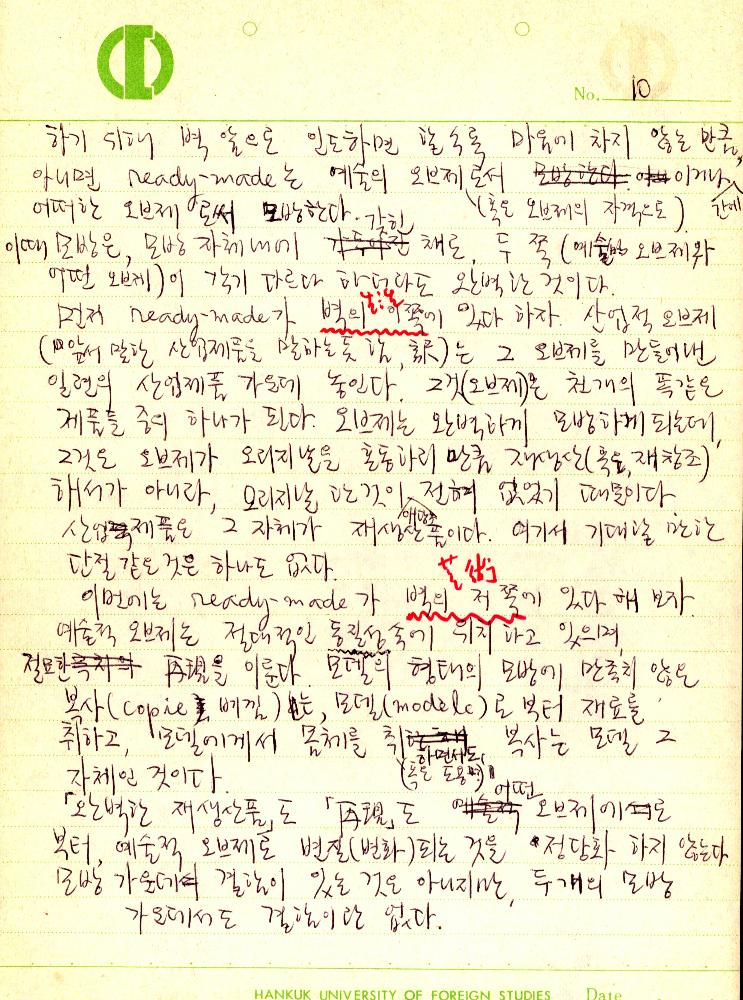 No. 10
하기 위해 벽 앞으로 인도하면 할수록 마음에 차지 않는 만큼,
아니면 ready-made는 예술의 오브제로서 모방한다. 이거나
어떠한 오브제로써 모방한다. (혹은 오브제의 자격으로) 간에
이때 모방은, 모방 자체내에 갇힌 채로, 두 쪽 (예술적 오브제와
어떤 오브제)이 각기 다르다 하더라도 완벽한 것이다.
먼저 ready-made가 벽의 이쪽에 있다 하자. 산업적 오브제
(앞서 말한 산업제품을 말하는 듯 함, 譯)는 그 오브제를 만들어낸
일련의 산업제품 가운데 놓인다. 그것(오브제)은 천개의 똑같은
제품들 중의 하나가 된다. 오브제는 완벽하게 모방하게 되는데,
그것은 오브제가 오리지날을 혼동하리 만큼 재생산(혹은, 재창조)
해서가 아니라, 오리지날 이란 것이 전혀 없었기 때문이다
산업제품은 그 자체가 재생산품이다. 여기서 기대할 만한
단절 같은 것은 하나도 없다.
芸術
이번에는 ready-made가 벽의 저 쪽에 있다 해 보자.
예술적 오브제는 절대적인 동질성 속에 위치하고 있으며,
절묘한 再現을 이룬다. 모델의 형태의 모방에 만족치 않은
복사(copie, 베낌)는, 모델(modèle)로 부터 재료를
취하고, 모델에게서 몸체를 취하면서도, 복사는 모델 그
(혹은 도용하며)
자체인 것이다.
「완벽한 재생산품」도 「再現」도 어떤 오브제에로
부터, 예술적 오브제로 변질(변화)되는 것을 정당화 하지 않는다
모방 가운데 결함이 있는 것은 아니지만, 두개의 모방
가운데서도 결함이란 없다.
HANKUK UNIVERSITY OF FOREIGN STUDIES Date